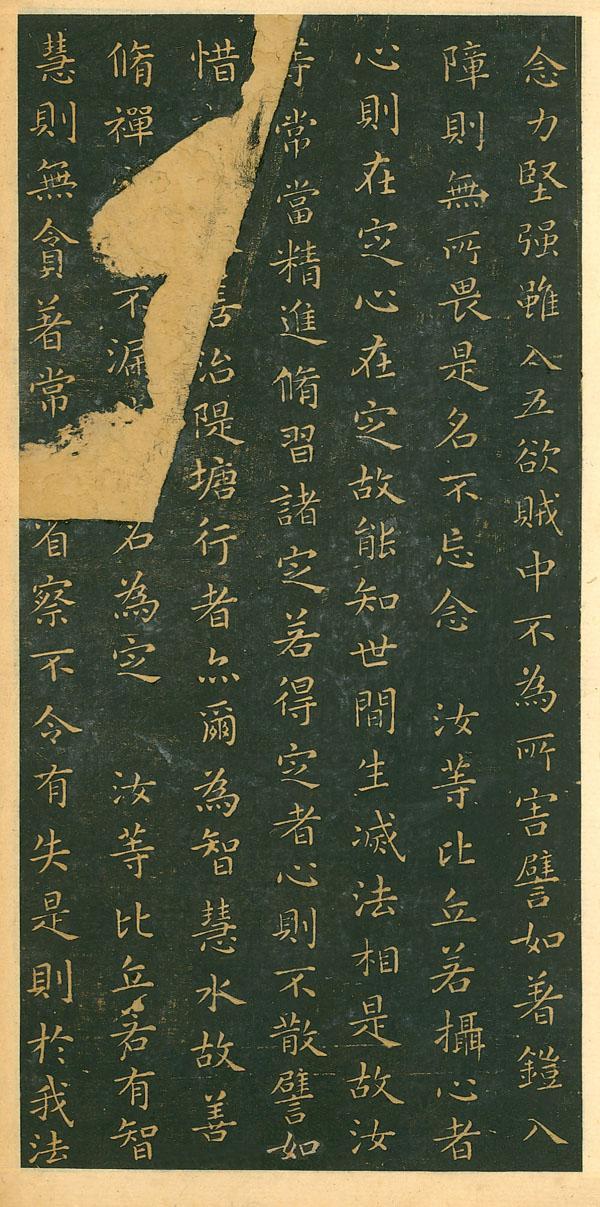 念力堅强雖入五欲賊中不為所害譬如著鎧入
障則無所畏是名不忘念 汝等比丘若攝心者
心則在定心在定故能知世間生滅法相是故汝
等常當精進脩習諸定若得定者心則不散譬如
惜善治隄塘行者亦爾為智慧水故善
脩禪不漏名為定 汝等比丘若有智
慧則無貪著常省察不令有失是則於我法